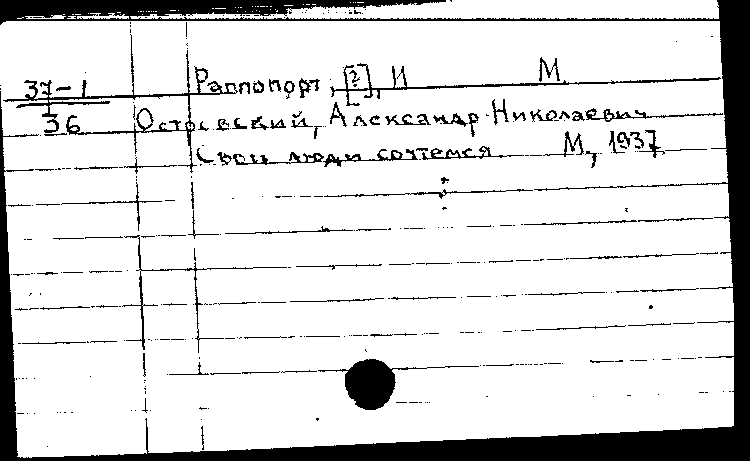 37-1 Раппопорт, [?], И М.
36 Островский, Александр Николаевич
Свои люди сочтемся М., 1937